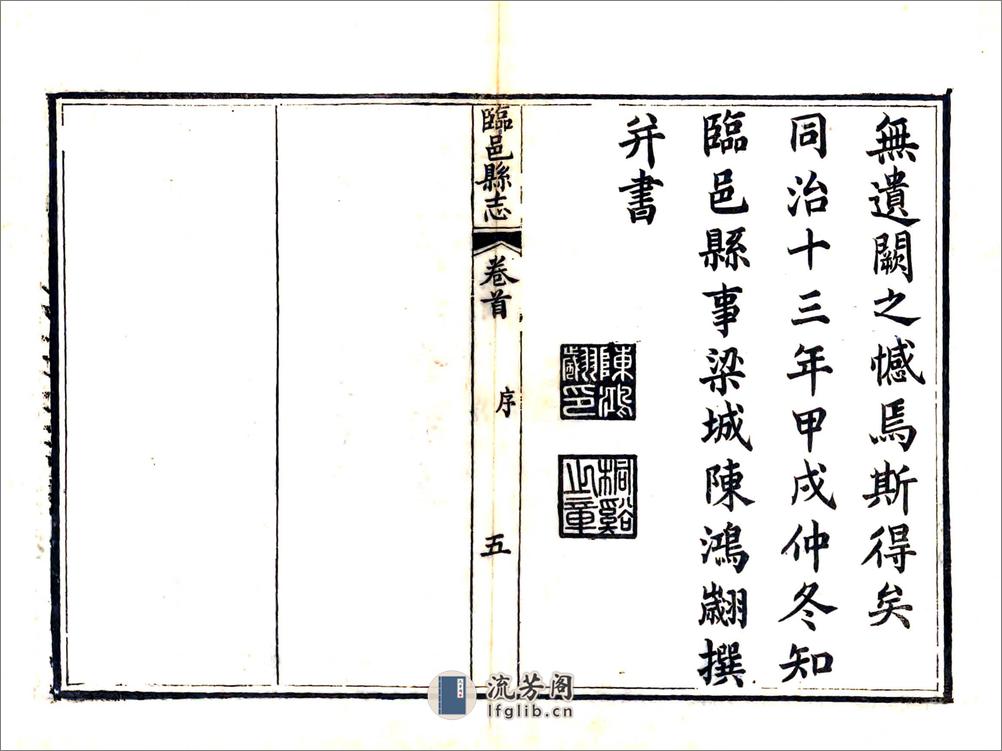 無遺闕之憾焉斯得矣
同治十三年甲戌仲冬知
臨邑縣事梁城陳鴻翽撰
并書
陳鴻
翽印
桐谿
臨邑縣志
卷首
序
五
流芳阁
lfglib.cn